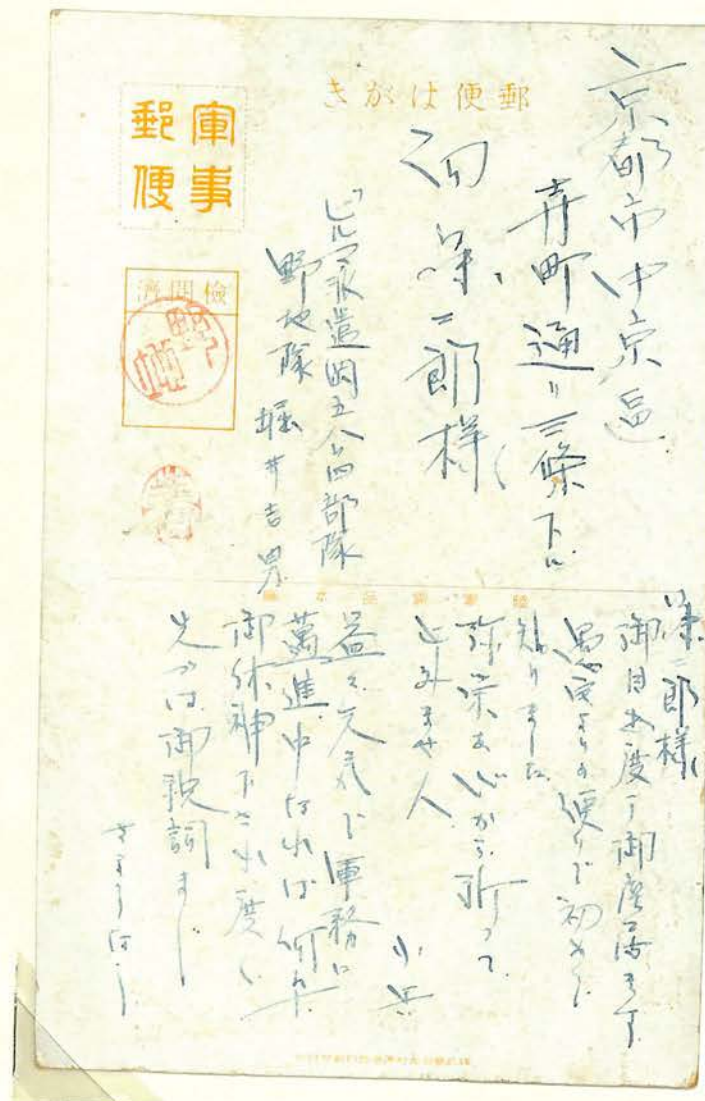 郵便はがき
軍事
郵便
検閲済
京都市中京区
寺町通り三條下ル
榮二郎様
ビルマ派遣
野地隊 堀井吉男
榮二郎様
御目出度う御座います
愚妻よりの便りで初めて
知りました
弥栄を心から祈って
止みません
小生
益々元気で軍務に
邁進中なれば何卒
御休神下され度く
先づは御祝詞まで
さようなら